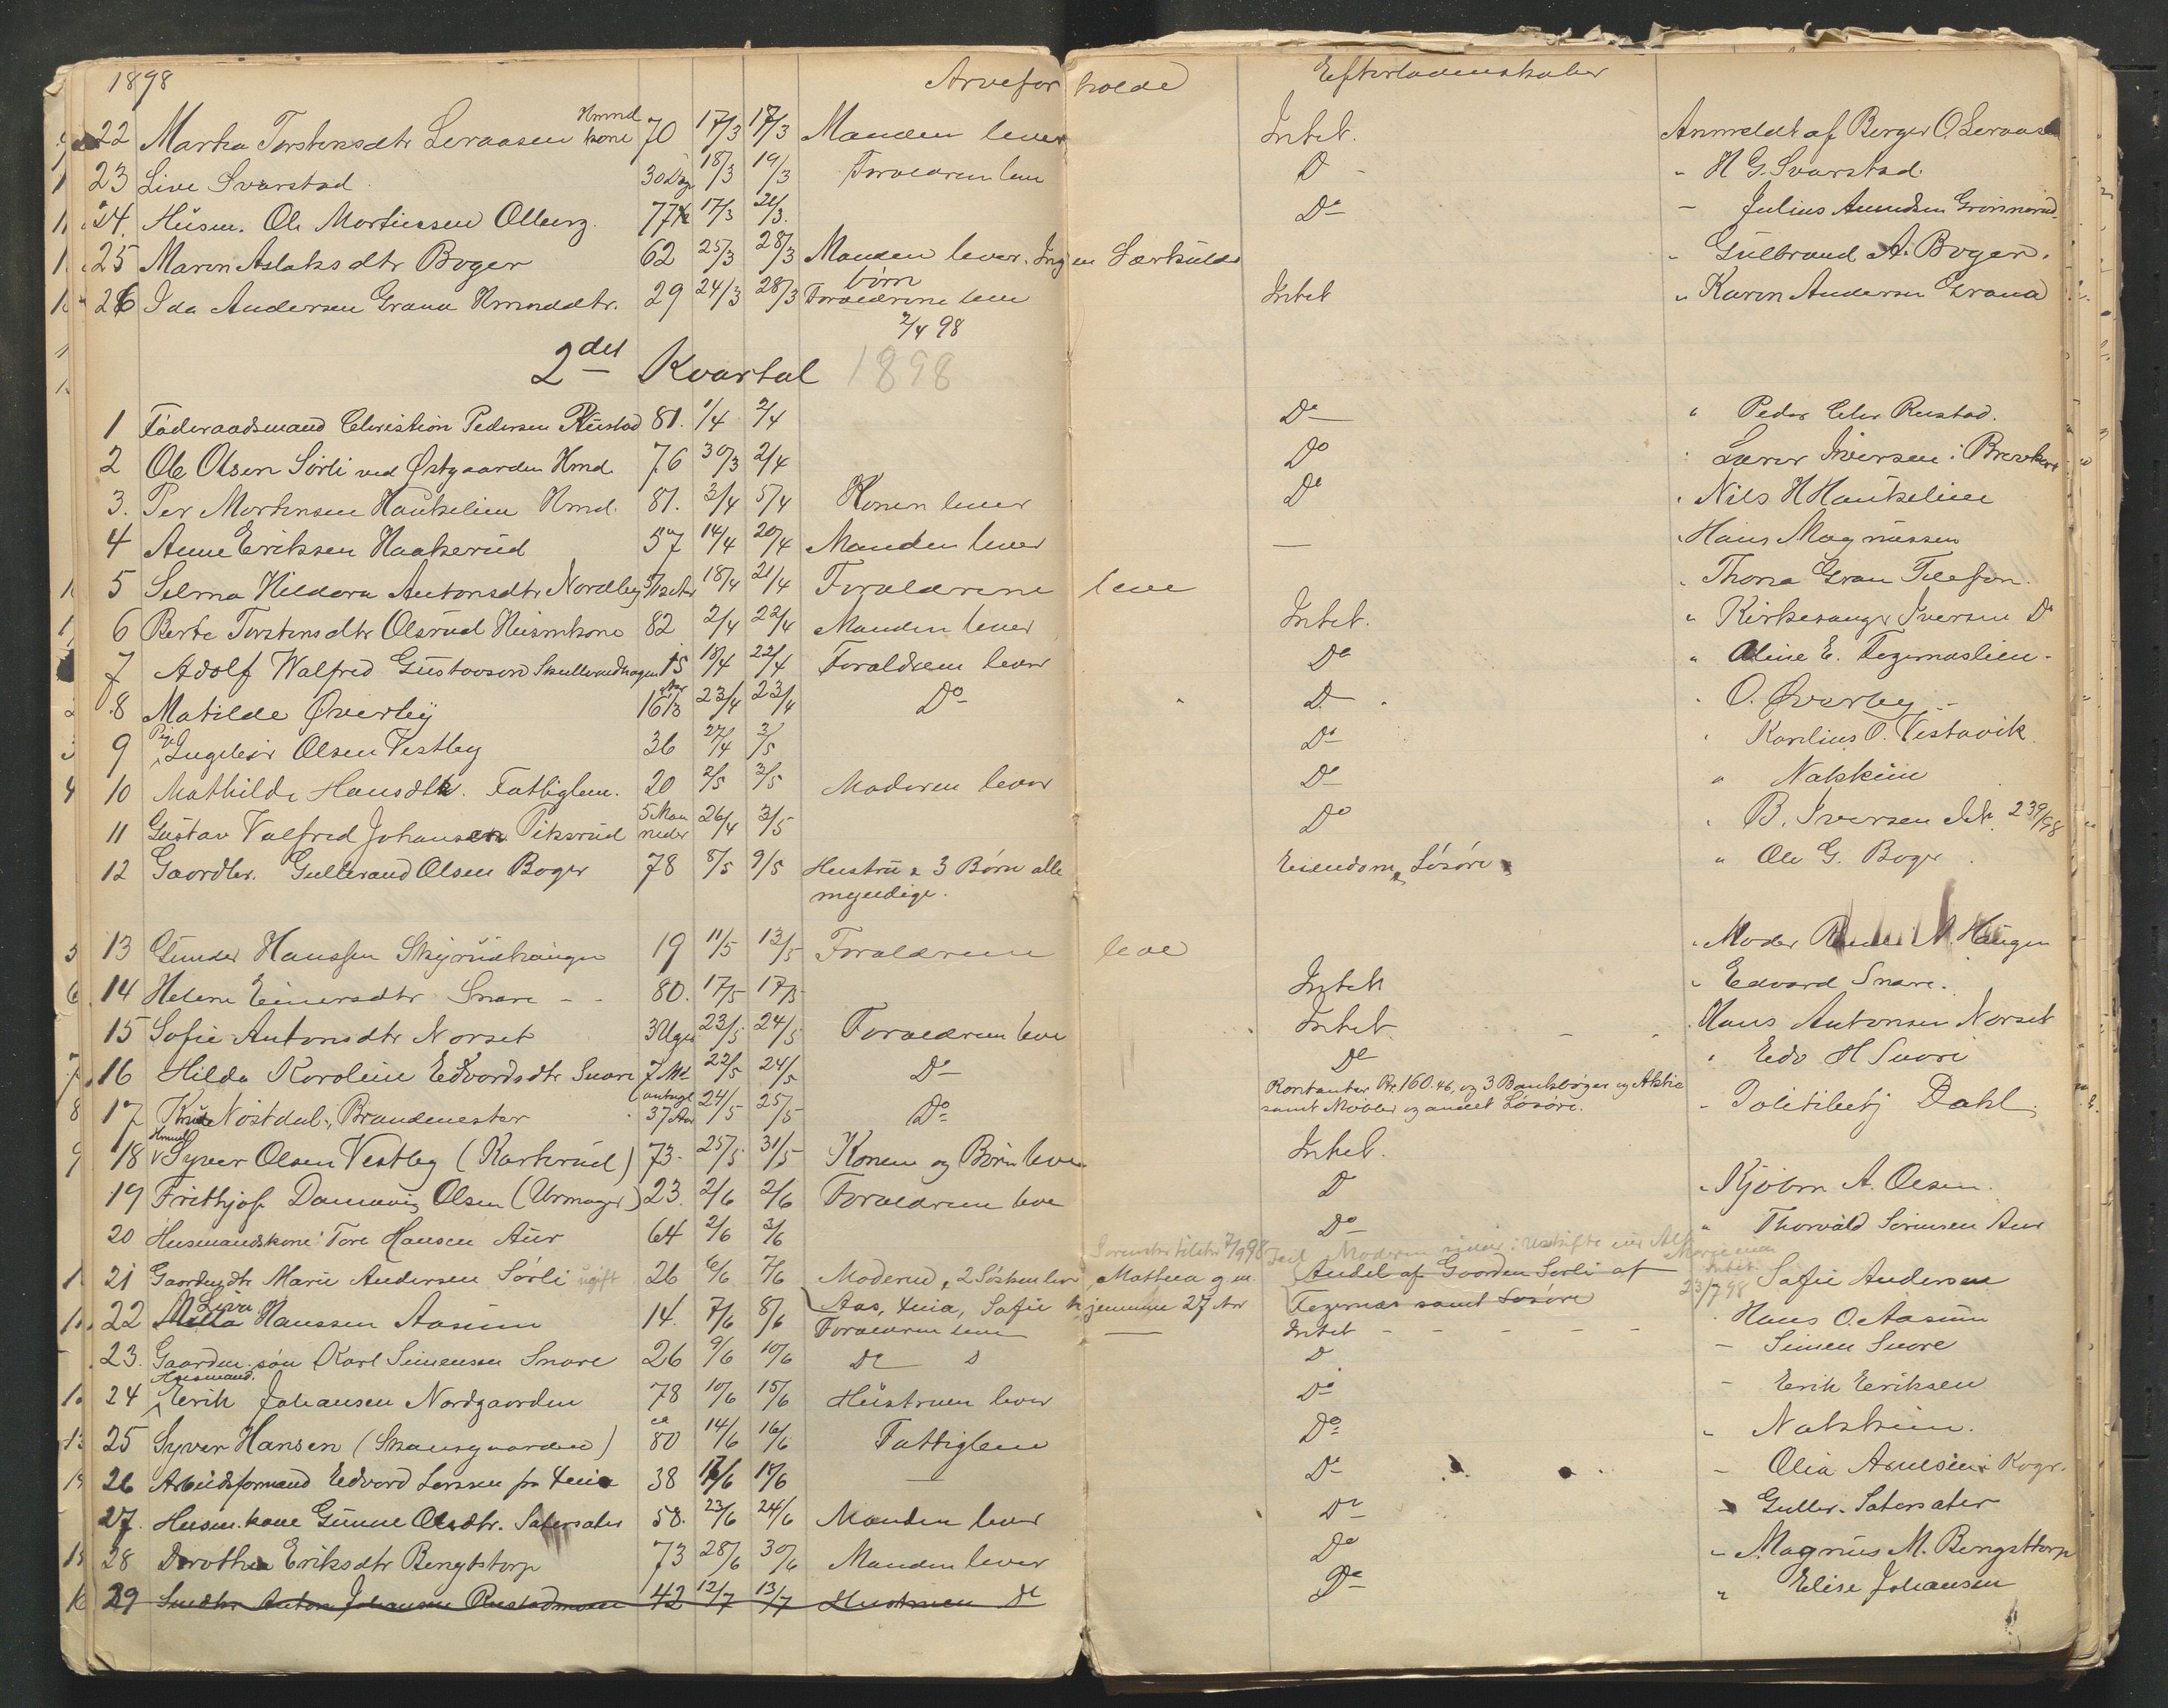 1898 Arvefor holde Efterladenskaber
22 Martha Torstensdtr Leraasen Hmnd kone 70 17/3 17/3 Manden lever Intet. Anmeldt af Berger O Leraasen
23 Live Svarstad 30 Dage 18/3 19/3 Foraldren leve D - " H G. Svarstad.
24. Husm. Ole Martiussen Olberg. 77 17/3 21/3. Do - Julius Amundsen
25 Maren Aslaksdtr Boger 62 25/3 28/3 Manden lever. Ingen Særkulds børn " Gulbrand A. Boger.
26 Ida Andersen Grana Hmnddtr. 29 24/3 28/3 Forældrene leve Intet " Karen Andersen Grana
2/4 98
2det Kvartal 1898
1 Føderaadsmand Christian Pedersen Rustad 81. 1/4 2/4 Do " Peder Chr Rustad.
2 Ole Olsen Sørli ved Østgaarden Hmd. 76 30/3 2/4 Do " Lærer Iversen i
3. Per Mortensen Haukelien Hmd. 81. 3/4 5/4 Konen lever Do " Nils H Haukelien
4 Anne Eriksen Haakerud 57 14/4 20/4 Manden lever — " Hans Magnussen
5 Selma Hildora Antonsdtr Nordby 18/4 21/4 Forældrene leve " Thora Gran Telefon.
6 Berte Torstensdtr Olsrud Husmkone 82 2/4 22/4 Manden lever Intet. " Kirkesanger Iversen Do
7 Adolf Walfred Gustavson 15 18/4 22/4 Foraldrene lever Do " Oline E. Fegernæslien.
8 Matilde Øverby 16 Aar 23/4 23/4 Do D. " O. Øverby
9 Pige Ingebor Olsen Vestby 36 27/4 3/5 Do " Karelius O. Vestavik
10 Mathilde Hansdtr. Fattiglem. 20 2/5 3/5 Moderen lever Do " Nakkim
11 Gustav Valfred Johansen Piksrud 5 Maaneder 26/4 3/5 Do " B. Iversen
12 Gaardbr. Gulbrand Olsen Boger 78 8/5 9/5 Hustru & 3 Børn alle myndige. Eiendom & Løsøre " Ole G. Boger
13 Gunder Hanssen Skyrudhaugen 19 11/5 13/5 Forældrene leve " Moder M. Haugen
14 Helene Einersdtr Snare - - 80. 17/5 17/5 Intet " Edvard Snare.
15 Sofie Antonsdtr Norset 3 Uger 23/5 24/5 Forældren leve Intet - " Hans Antonsen Norset
16 Hilda Karoline Edvardsdtr Snare 7 Md 22/5 24/5 Do Do " Edv H Snare
17 Nøstdal, Brandmester antagl 37 Aar 24/5 25/5 Do Kontanter Kr. 160.46, og 3 Bankbøger og Aktie samt Møbler og andet Løsøre. " Politibetj Dahl
18 Hmnd Syver Olsen Vestby (Karterud) 73. 25/5 31/5 Konen og Børn leve. Intet.
19 Frithjof Olsen (Urmager) 23. 2/6 2/6 Forældren leve D " Kjøbm A. Olsen.
20 Husmandskone Tore Hansen Aur 64 2/6 3/6 Do " Thorvald Sørensen Aur
21 Gaardmdtr Marie Andersen Sørli ugift 26 6/6 7/6 Moderen, 2 Søsken lever, Mathea gm. Aas, Ænia, Sofie hjemme 27 Aar Andel af Gaarden Sørli af Fegernæs samt Løsøre 23/7 98 Sofie Andersen
22 Live Hanssen Aasum 14. 7/6 8/6 Forældren leve — Intet - - - - - " Hans O. Aasum
23. Gaardm. søn Karl Simensen Snare 26 9/6 10/6 Do D - Simen Snare
24 Husmand. Erik Johansen Nordgaarden 78 10/6 15/6 Hustruen lever Do - Erik Eriksen
25 Syver Hansen (Skansgaarden) ca 80 14/6 16/6 Fattiglem Do " Nakkim.
26 Arbeidsformand Edvard Larssen fra Ænia 38 17/6 18/6 — Do - Olia
27. Husm. kone Gunne Olsdtr. Sætersæter 58. 23/6 24/6 Manden lever Do - Gulbr. Sætersæter
28 Dorothea Eriksdtr Bengtstorp 73 28/6 30/6 Manden lever Do " Magnus M. Bengsttorp
29 Smedbr Anton Johansen Rustadmoen 42 12/7 13/7 Hustruen do Do " Elise Johansen